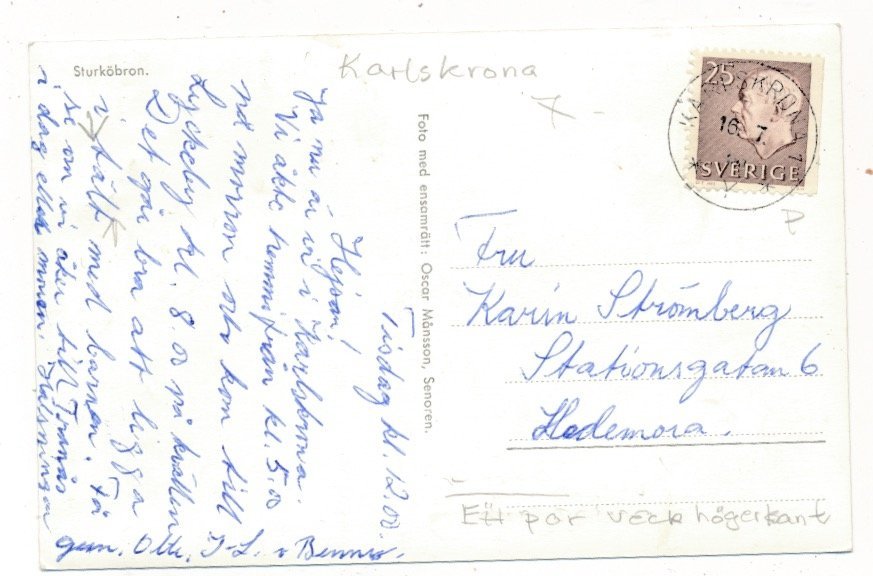 Sturköbron.
Karlskrona
25
KARLSKRONA 1
16 7
SVERIGE
Foto med ensamrätt: Oscar Månsson, Senoren.
Tisdag kl. 12.00.
Hejsan!
Ja nu är vi i Karlskrona.
Vi åkte hemmifrån kl. 5.00
på morron och kom till
Lyckeby kl. 8.00 på kvällen
Det går bra att ligga
i tält med barnen. Få
se om vi åker till Tranås
i dag eller morron. Hälsningar
gun. Olle, I-L. o Benna.
Fru
Karin Strömberg
Stationsgatan 6
Hedemora.
Ett par veck högerkant
P